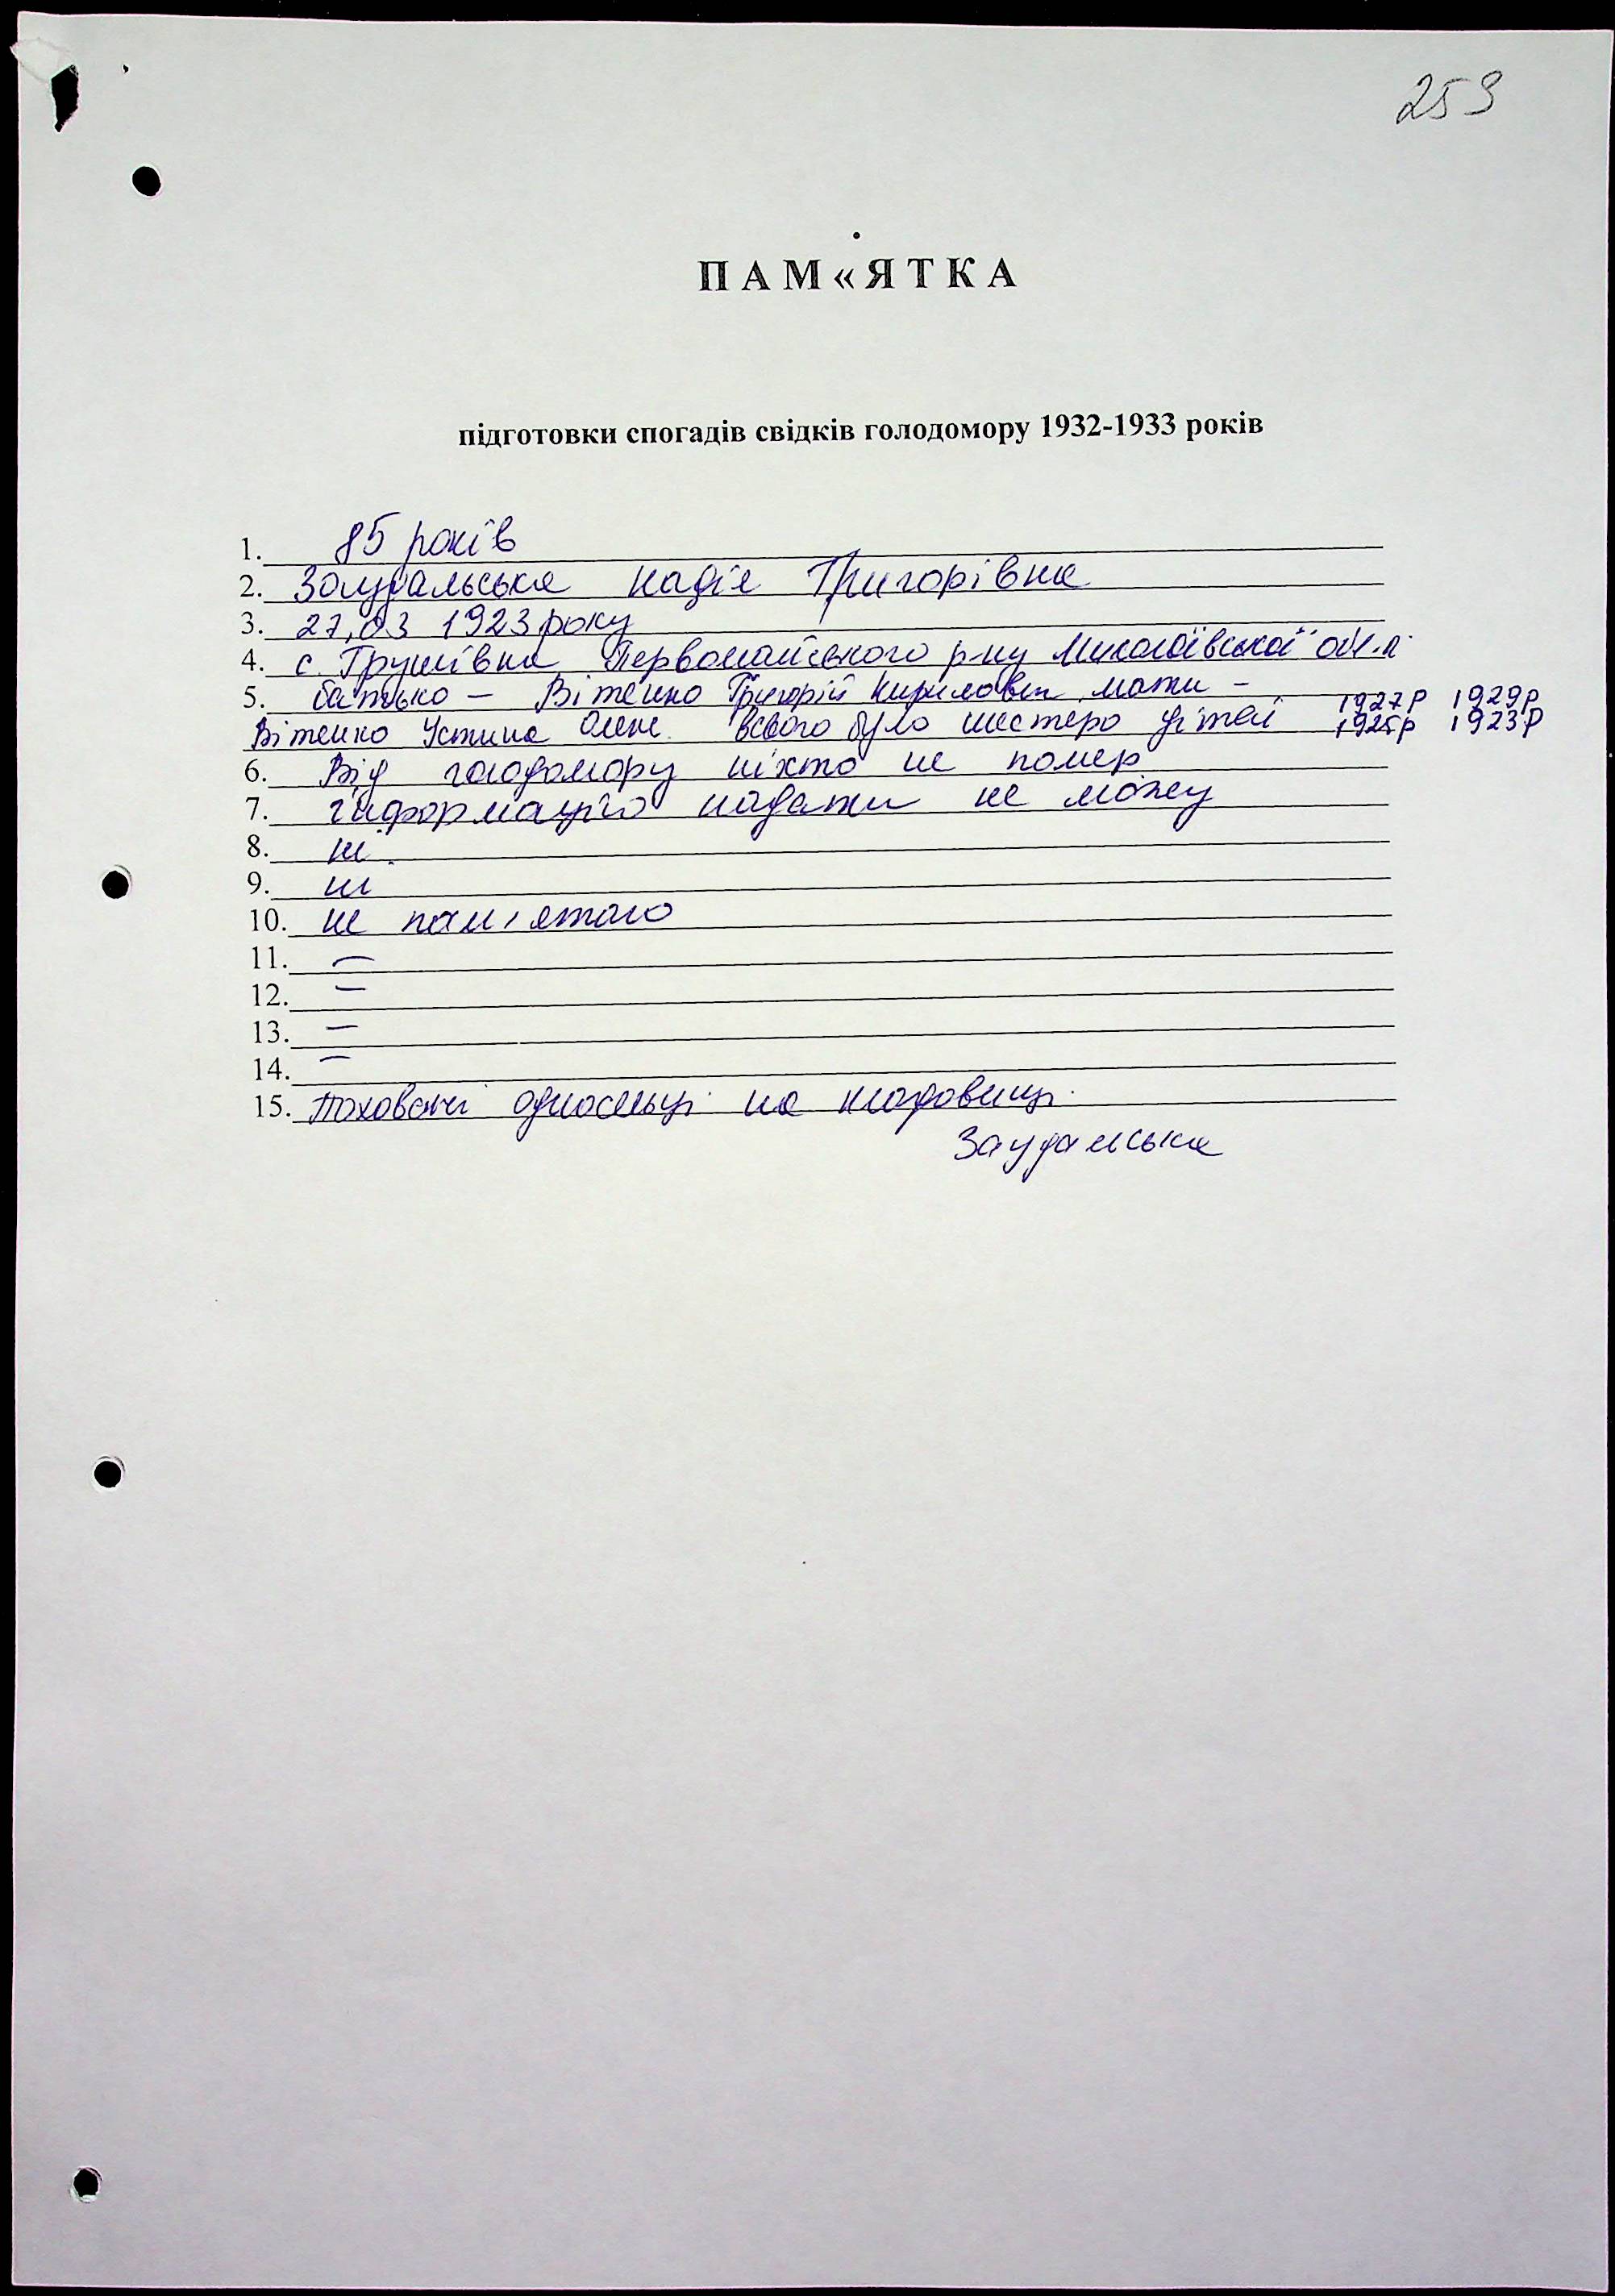 259
ПАМ«ЯТКА
підготовки спогадів свідків голодомору 1932-1933 років
1. 85 років
2. Заудальська Надія Григорівна
3. 27,03 1923 року
4. с. Грушівка Первомайського р-ну Миколаївської обл.
5. батько – Вітенко Григорій Кирилович, мати – 1927р 1929р
Вітенко Устина Олек. всього було шестеро дітей 1925р 1923р
6. Від голодомору ніхто не помер
7. інформацію надати не можу
8. ні.
9. ні
10. не пам'ятаю
11. –
12. –
13. –
14. –
15. Поховані односельці на кладовищі.
Заудальська